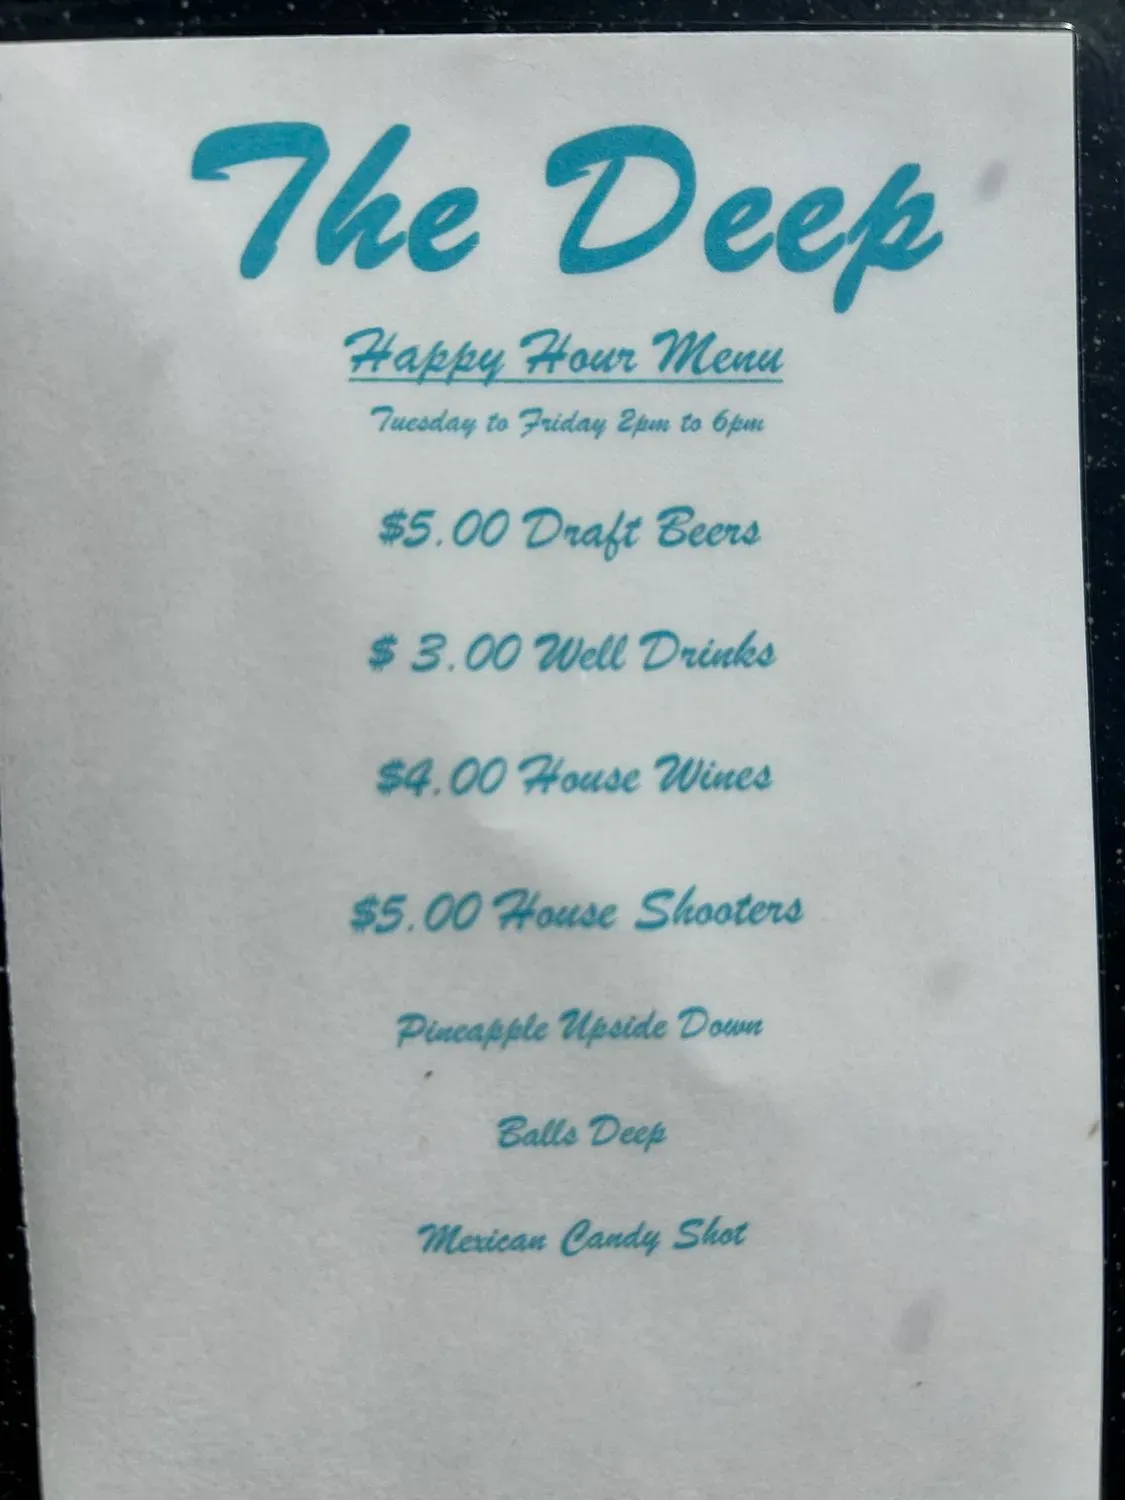 The Deep
Happy Hour Menu
Tuesday to Friday 2pm to 6pm
$5.00 Draft Beers
$ 3.00 Well Drinks
$4.00 House Wines
$5.00 House Shooters
Pineapple Upside Down
Balls Deep
Mexican Candy Shot